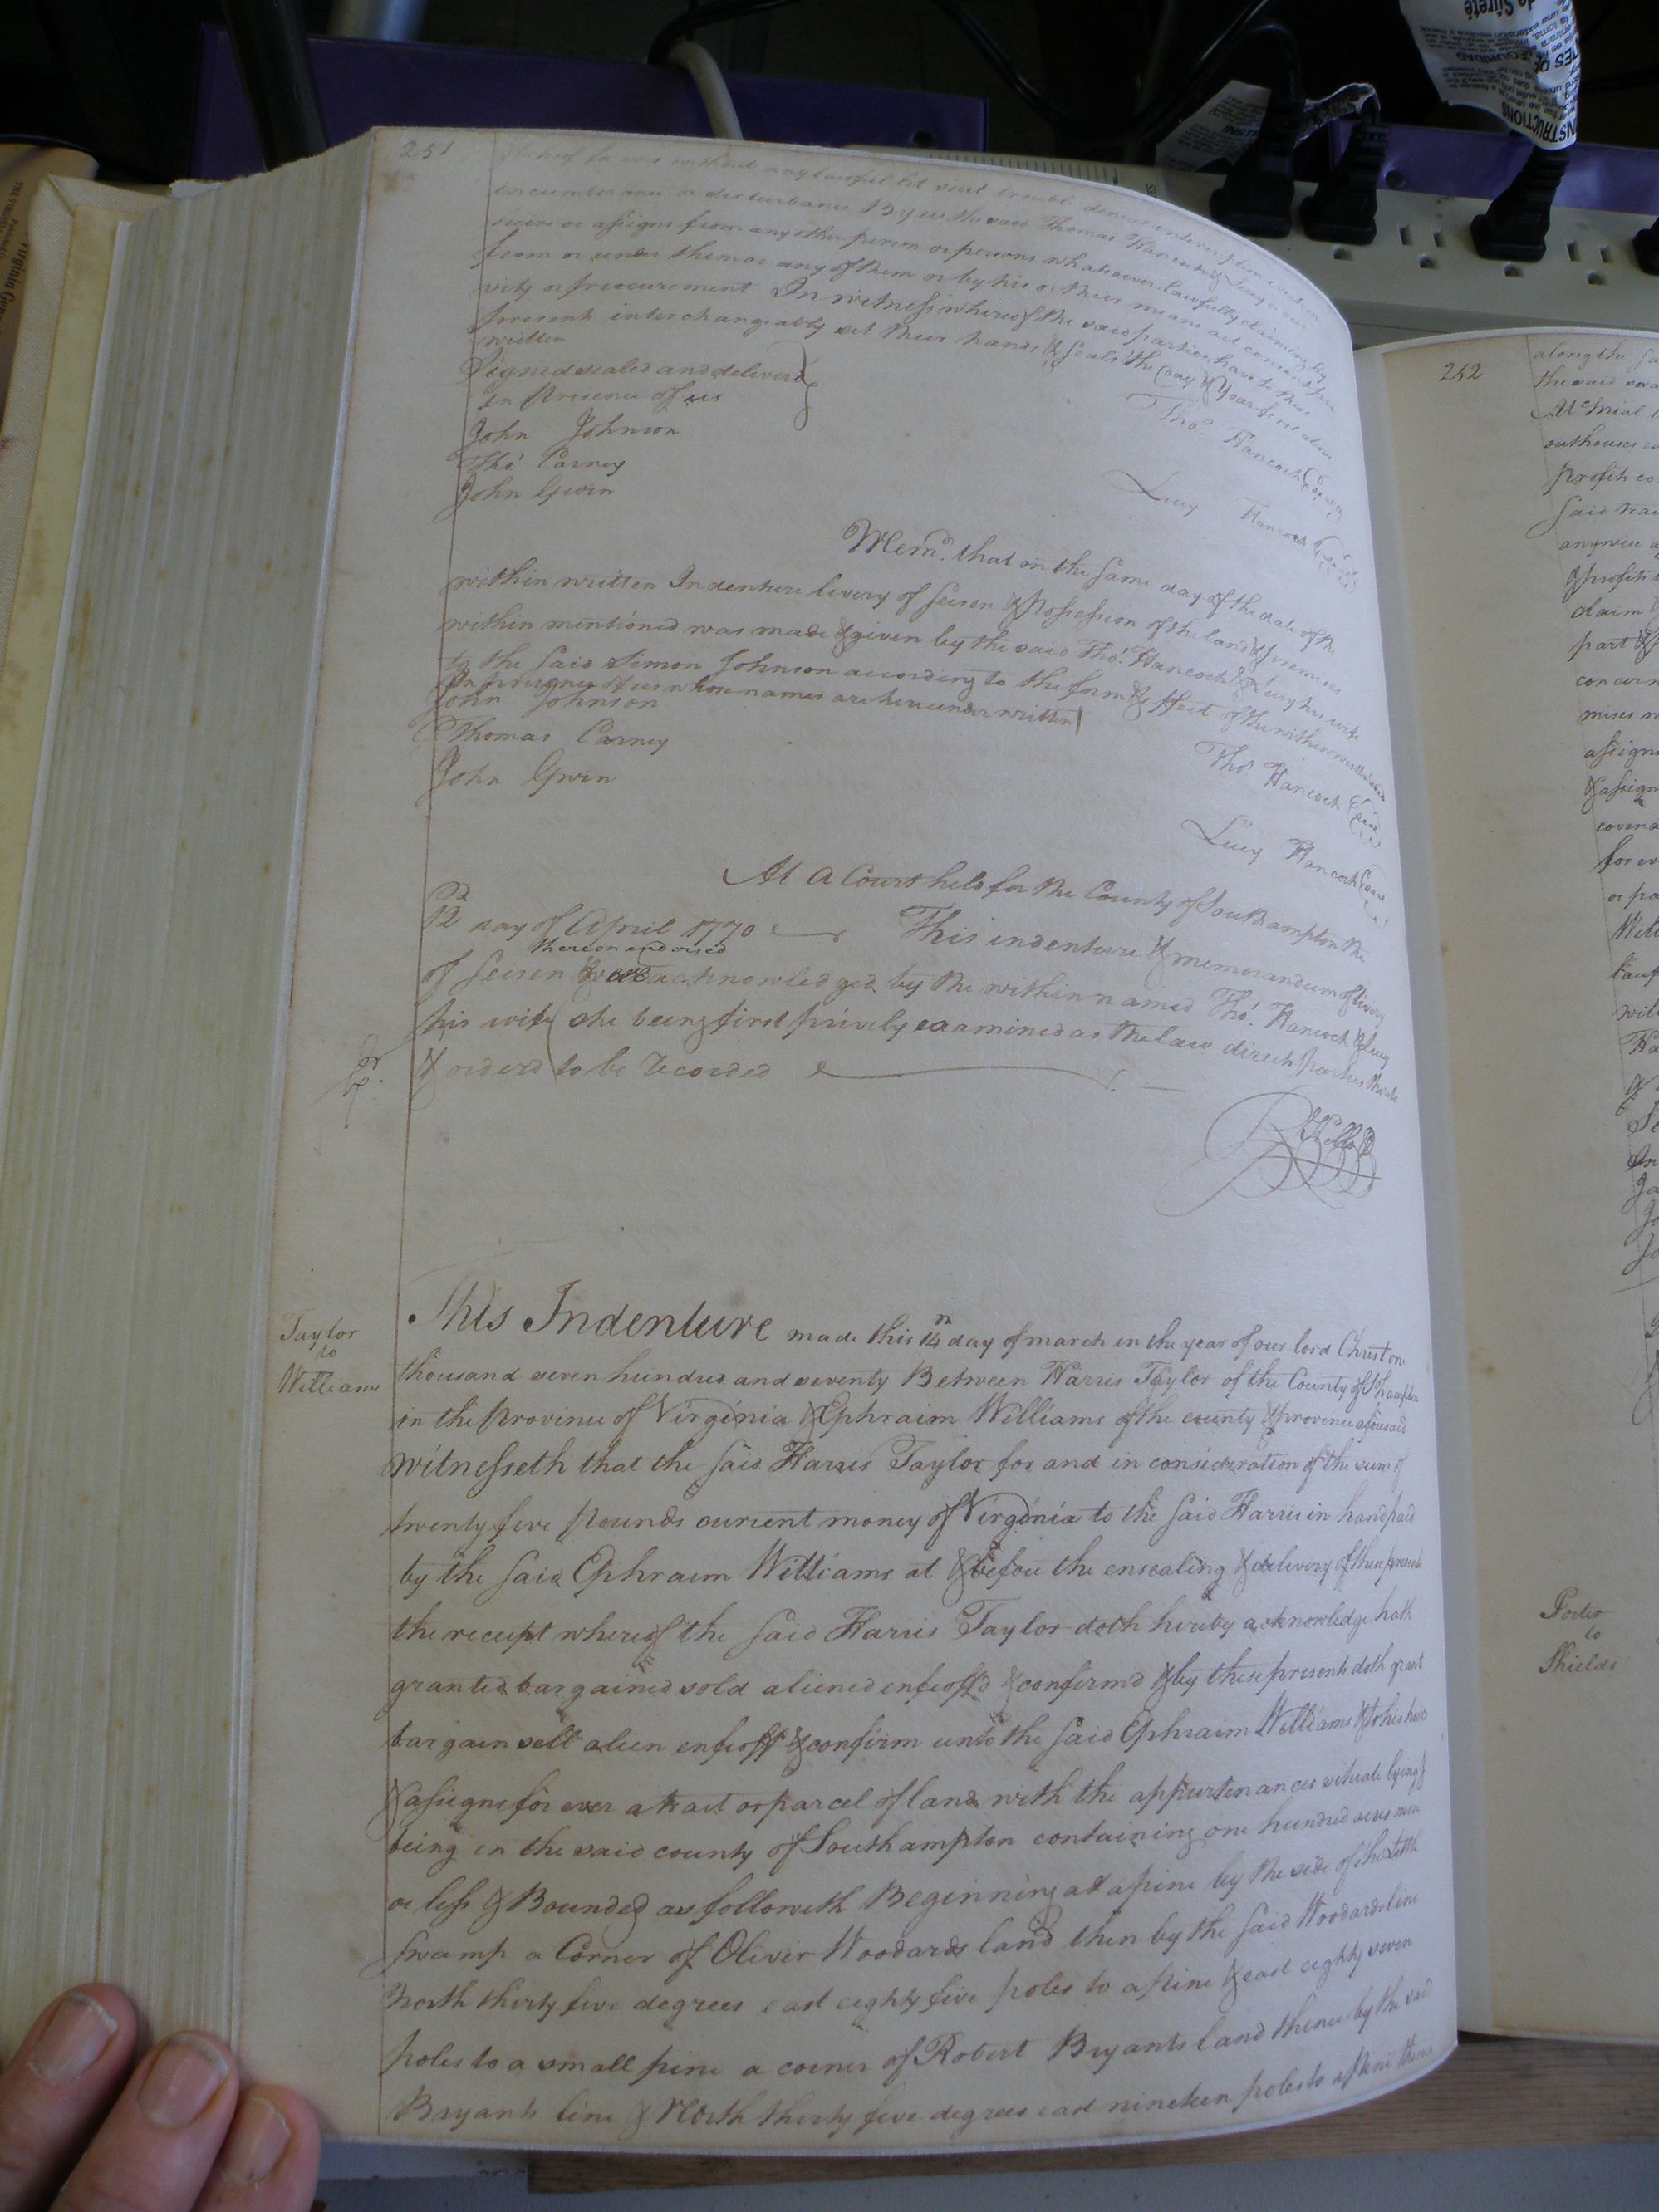 251
incumberance or disturbance By us the said Thomas Hancock & Lucy or our
heirs or assigns from any other person or persons whatsoever lawfully claiming by
from or under them or any of them or by his or their means act consent
vity or procurement In witness whereof the said parties have to these
presents interchangeably set their hands & seals the day & Year first above
written
Signed sealed and deliverd
in Presence of us
John Johnson
Tho.s Carney
John Gwin
Tho.s Hancock
Lucy Hancock
Mem.o that on the same day of the date of the
within written Indenture livery of seisen & Possession of the land & premises
within mentioned was made & given by the said Tho.s Hancock & Lucy his wife
to the said Simon Johnson according to the form & effect of the within written
In presence of us whose names are hereunder written
John Johnson
Thomas Carney
John Gwin
Tho.s Hancock
Lucy Hancock
At a Court held for the County of Southampton the
12 day of April 1770 This indenture & memorandum of livery
of seisen thereon endorsed were acknowledged by the within named Tho.s Hancock & Lucy
his wife (she being first privily examined as the law directs) parties thereto
& orderd to be recorded
Taylor
to
Williams
This Indenture made this 14 day of march in the year of our lord Christ one
thousand seven hundred and seventy Between Harris Taylor of the County of Shampton
in the Province of Virginia & Ephraim Williams of the county & province aforesaid
witnesseth that the said Harris Taylor for and in consideration of the sum of
twenty five Pounds current money of Virginia to the said Harris in hand paid
by the said Ephraim Williams at & before the ensealing & delivery of these presents
the receipt whereof the said Harris Taylor doth hereby acknowledge hath
granted bargained sold aliened enfeoffd & confirmd & by these presents doth grant
bargain sell alien enfeoff & confirm unto the said Ephraim Williams & to his heirs
& assigns for ever a tract or parcel of land with the appurtenances situate lying &
being in the said county of Southampton containing one hundred acres more
or less & Bounded as followeth Beginning at a pine by the side of the Little
swamp a Corner of Oliver Woodards land then by the said Woodards line
North thirty five degrees east eighty five poles to a pine & east eighty seven
poles to a small pine a corner of Robert Bryants land thence by the said
Bryants line & North thirty five degrees east nineteen poles to a pine thence
252
along the
the said
outhouses
profits
said
anywise
& profits
claim
part &
mises
assigns
& assigns
for ever
or
Porter
to
Shields